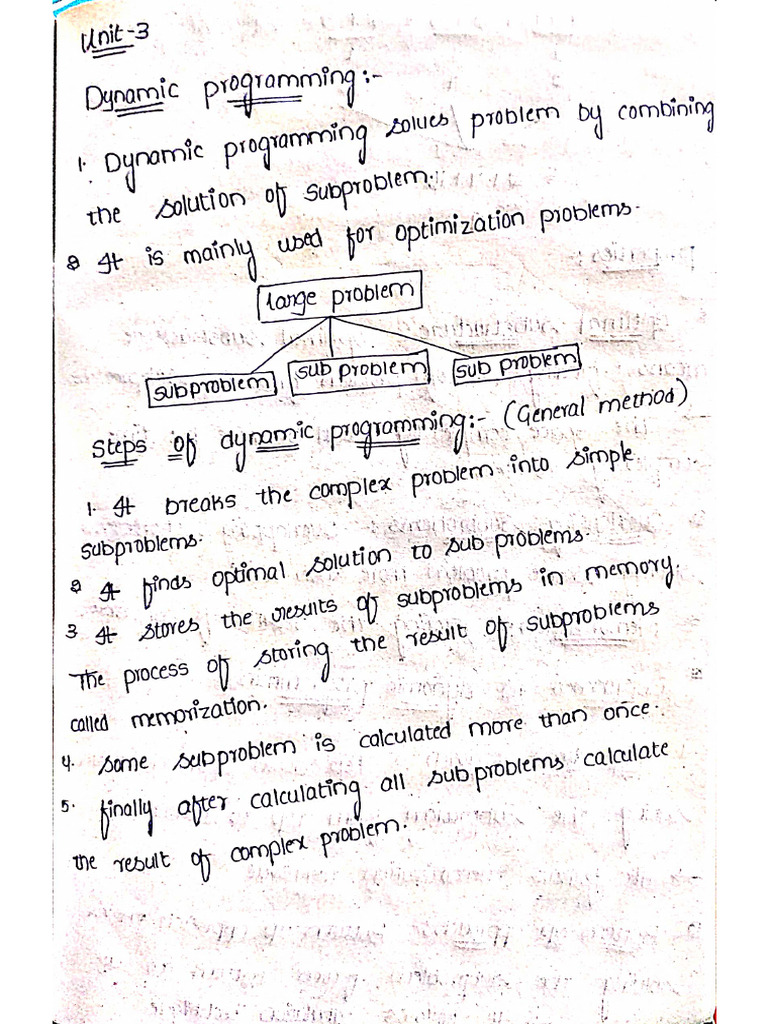 Unit-3
Dynamic programming:-
1. Dynamic programming solves problem by combining
the solution of subproblem.
2 It is mainly used for optimization problems.
large problem
subproblem sub problem sub problem
Steps of dynamic programming:- (General method)
1. It breaks the complex problem into simple
subproblems.
2 It finds optimal solution to sub problems.
3 It stores the results of subproblems in memory.
The process of storing the result of subproblems
called memorization.
4. Some subproblem is calculated more than once.
5. finally after calculating all subproblems calculate
the result of complex problem.